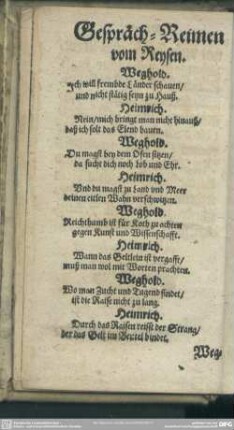 Gespräch-Reimen
vom Reysen.
Weghold.
Ich will frembde Länder schauen/
und nicht stätig seyn zu Hauß.
Heinrich.
Nein/mich bringt man nicht hinauß/
daß ich solt das Elend bauen.
Weghold.
Du magst bey dem Ofen sitzen/
da sucht dich noch Lob und Ehr.
Heinrich.
Vnd du magst zu Land und Meer
deinen eitlen Wahn verschwitzen.
Weghold.
Reichthumb ist für Koth zu achten
gegen Kunst und Wissenschafft.
Heinrich.
Wann das Geltlein ist vergafft/
muß man wol mit Worten prachten.
Weghold.
Wo man Zucht und Tugend findet/
ist die Raise nicht zu lang.
Heinrich.
Durch das Raisen reisst der Strang/
der das Gelt im Beutel bindet.
Weg-